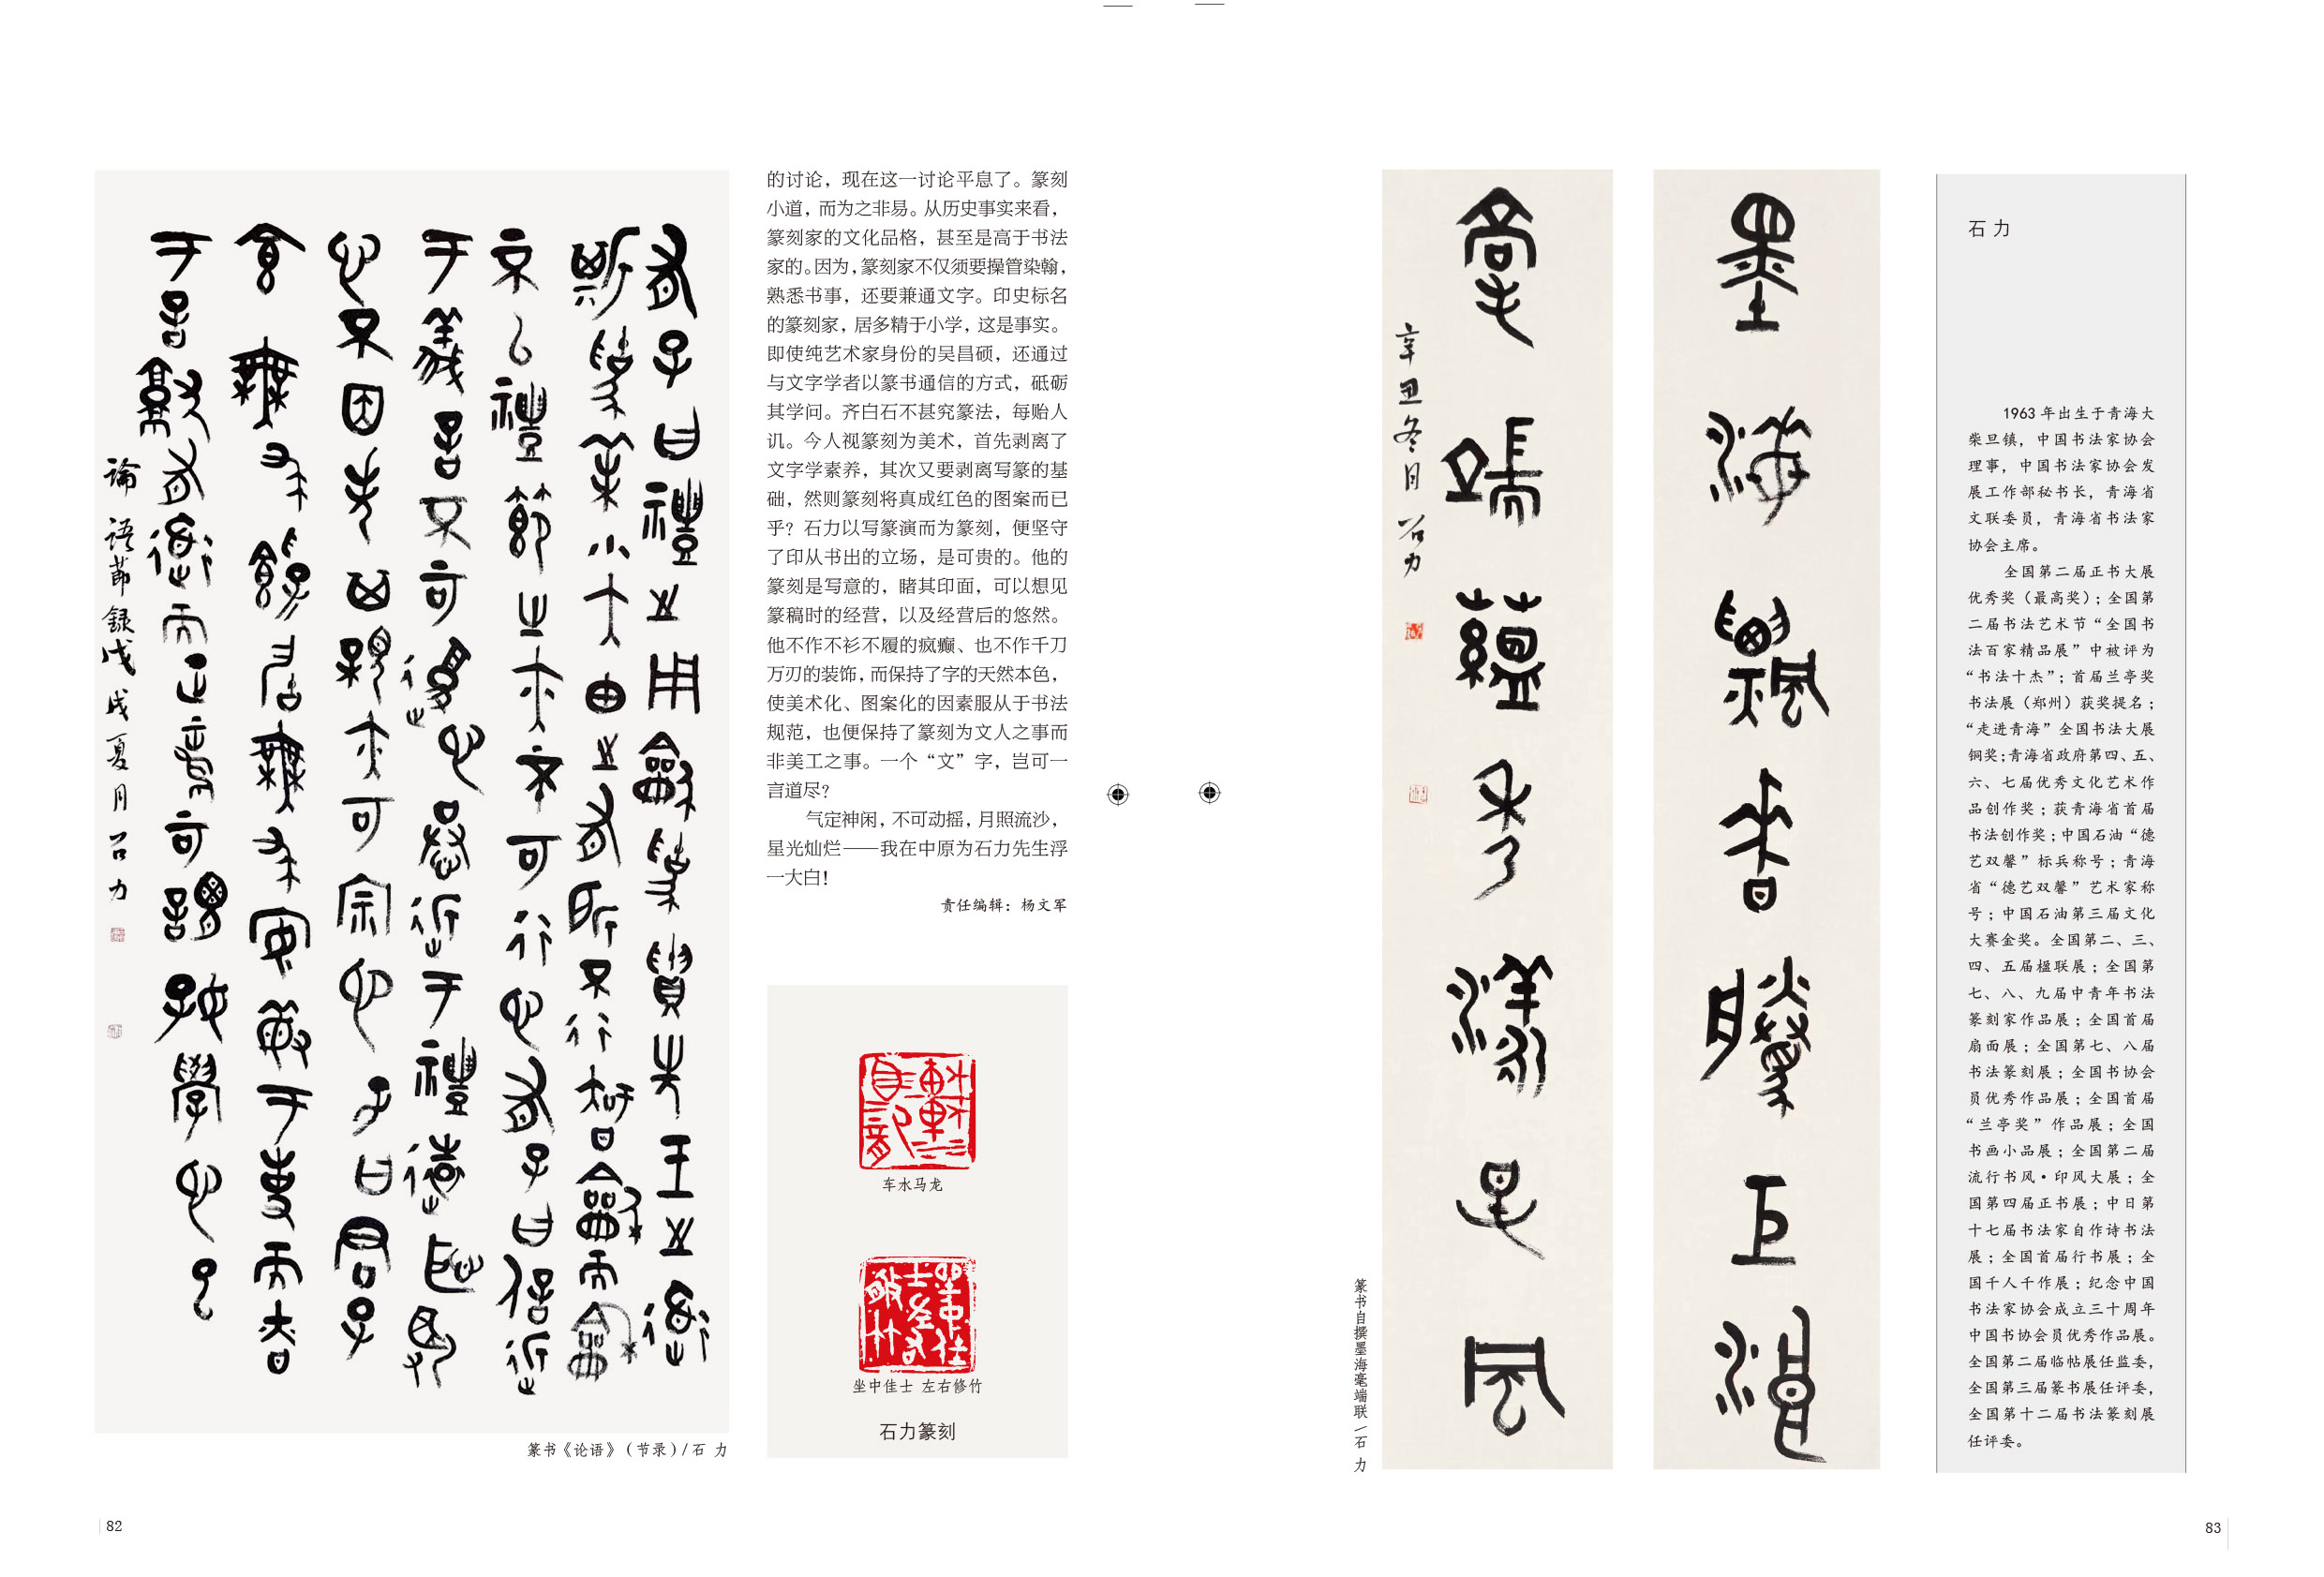 有子曰禮之用龢為貴先王之道
斯為美小大由之有所不行知龢而龢
不以禮節之亦不可行也有子曰信近
于義言可復也恭近于禮遠恥辱
也因失親亦可宗也子曰君子
食無求飽居無求安敏于事而昚
于言就有道而正焉可謂好學也已
论语节録戊戌夏月石力
篆书《论语》（节录）/石 力
的讨论，现在这一讨论平息了。篆刻
小道，而为之非易。从历史事实来看，
篆刻家的文化品格，甚至是高于书法
家的。因为，篆刻家不仅须要操管染翰，
熟悉书事，还要兼通文字。印史标名
的篆刻家，居多精于小学，这是事实。
即使纯艺术家身份的吴昌硕，还通过
与文字学者以篆书通信的方式，砥砺
其学问。齐白石不甚究篆法，每贻人
讥。今人视篆刻为美术，首先剥离了
文字学素养，其次又要剥离写篆的基
础，然则篆刻将真成红色的图案而已
乎？石力以写篆演而为篆刻，便坚守
了印从书出的立场，是可贵的。他的
篆刻是写意的，睹其印面，可以想见
篆稿时的经营，以及经营后的悠然。
他不作不衫不履的疯癫、也不作千刀
万刃的装饰，而保持了字的天然本色，
使美术化、图案化的因素服从于书法
规范，也便保持了篆刻为文人之事而
非美工之事。一个“文”字，岂可一
言道尽？
气定神闲，不可动摇，月照流沙，
星光灿烂——我在中原为石力先生浮
一大白！
责任编辑：杨文军
车水马龙
坐中佳士 左右修竹
石力篆刻
82
墨海飘香腾巨
毫端蕴秀
风
辛丑冬月石力
篆书自撰墨海毫端联/石 力
石力
1963 年出生于青海大
柴旦镇，中国书法家协会
理事，中国书法家协会发
展工作部秘书长，青海省
文联委员，青海省书法家
协会主席。
全国第二届正书大展
优秀奖（最高奖）；全国第
二届书法艺术节“全国书
法百家精品展”中被评为
“书法十杰”；首届兰亭奖
书法展（郑州）获奖提名；
“走进青海”全国书法大展
铜奖；青海省政府第四、五、
六、七届优秀文化艺术作
品创作奖；获青海省首届
书法创作奖；中国石油“德
艺双馨”标兵称号；青海
省“德艺双馨”艺术家称
号；中国石油第三届文化
大赛金奖。全国第二、三、
四、五届楹联展；全国第
七、八、九届中青年书法
篆刻家作品展；全国首届
扇面展；全国第七、八届
书法篆刻展；全国书协会
员优秀作品展；全国首届
“兰亭奖”作品展；全国
书画小品展；全国第二届
流行书风·印风大展；全
国第四届正书展；中日第
十七届书法家自作诗书法
展；全国首届行书展；全
国千人千作展；纪念中国
书法家协会成立三十周年
中国书协会员优秀作品展。
全国第二届临帖展任监委，
全国第三届篆书展任评委，
全国第十二届书法篆刻展
任评委。
83